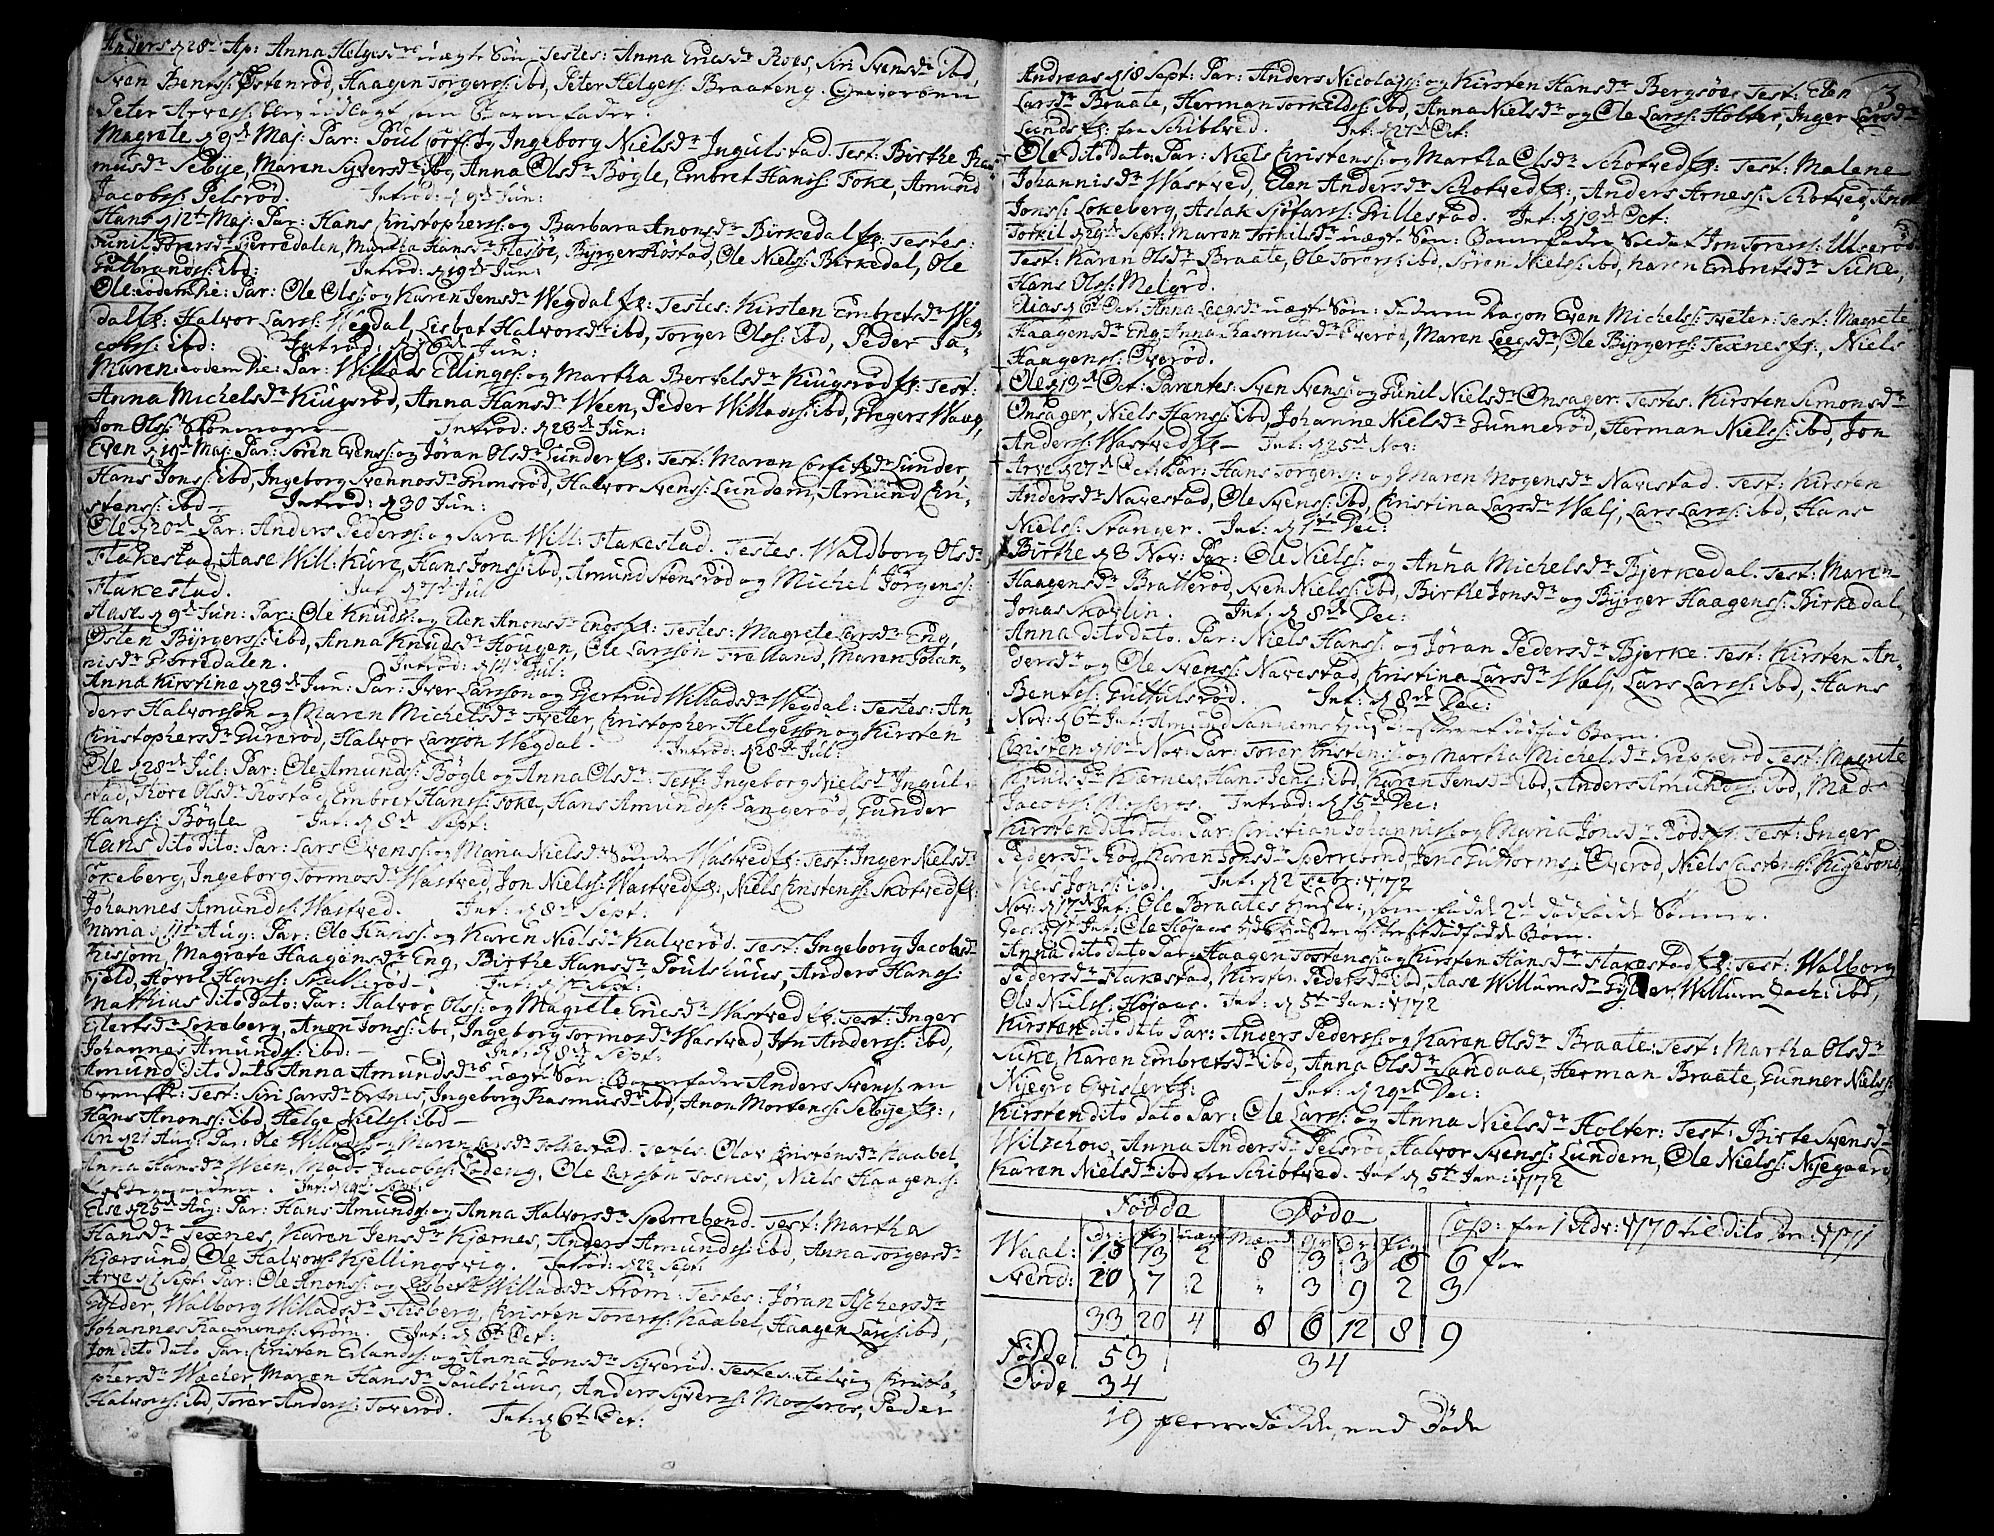 Anders d 28 Ap: Anna Helgesdr uægte Søn Testes: Anna Ericsdr Roes, Siri Svensdr ibd,
Sven Bentss: Østenrød, Haagen Torgerss: ibd, Peter Helgess: Braateng.
Peter Arvess: blev udlagt som Barnefader.
Magrete d 9de Maj: Par: Poul og Ingeborg Nielsdr Ingulstad. Test: Birthe Ras-
musdr Sebye, Maren Syversdr ibd, Anna Olsdr Bøgle, Embret Hanss: Foke, Amund
Jacobss: Pelsrød. Introd: d 9de Jun:
Hans d 12te Maj: Par: Hans Christopherss: og Barbara Anonsdr Birkedal fr: Testes:
Gunil Torersdr Sperredalen, Martha Hansdr Flesøe, Byrger Rostad, Ole Nielss: Birkedal, Ole
Gulbrandss: ibd: Introd: d 19de Jun:
Ole eodem Die: Par: Ole Olss: og Karen Jensdr Wegdal fr: Testes: Kirsten Embretsdr Weg,
dal fr: Halvor Larss: Wegdal, Lisbet Halvorsdr ibd, Torger Olss: ibd, Peder Ja-
cobss: ibd: Introd: d 16de Jun:
Maren eodem Die: Par: Willads Ellingss: og Martha Bertelsdr Kiugsrød fr: Test:
Anna Michelsdr Kiugsrød, Anna Hansdr Ween, Peder Willadss: ibd, Gregers Waag,
Jon Olss: Skomager Introd: d 23de Jun:
Even d 19de Maj: Par: Søren Evenss: og Jøran Olsdr Lunder fr. Test: Maren Lunder,
Hans Jonss: ibd, Ingeborg Svennesdr Grimsrød, Halvor Svenss: Lundem, Amund Cri-
stenss: ibd Introd: d 30 Jun:
Ole d 20de Par: Anders Pederss: og Sara Will: Flakestad. Testes: Waldborg Olsdr
Flakestad, Aase Will: Kure, Hans Jonss: ibd, Amund Stensrød og Michel Jörgenss:
Flakestad. Int: d 7de Jul
Aase d 9de Jun: Par: Ole Knudss: og Elen Anonsdr Eng fr: Testes: Magrete Larsdr Eng,
Østen Byrgerss: ibd, Anna Knudsdr Hougen, Ole Larssøn Trelland, Maren Johan-
nisdr Sperredalen. Introd: d 14de Jul:
Anna Kirstina d 23de Jun: Par: Iver Larsson og Gjertrud Willadsdr Wegdal: Testes: An,
ders Halvorssøn og Maren Michelsdr Tveter, Christopher Helgessøn og Kirsten
Christophersdr Gurerød, Halvor Larssøn Wegdal. Introd: d 28de Jul:
Ole d 28de Jul: Par: Ole Amundss: Bøgle og Anna Olsdr: Test: Ingeborg Nielsdr Ingul-
stad, Tore Olsdr Rostad, Embret Hanss: Foke, Hans Amundss: Langerød, Gunder
Hanss: Bøgle Int: d 8de Sept:
Hans dito dito: Par: Lars Svenss: og Maria Nielsdr Sønder Wastved fr: Test: Inger Nielsdr
Lokeberg, Ingeborg Tormosdr Wastved, Jon Nielss: Wastved fr:, Niels Cristenss: Skotved fr:
Johannes Amundss: Wastved. Int: d 8de Sept:
Maria d 11te Aug: Par: Ole Hanss: og Karen Nielsdr Kalverød. Test: Ingeborg Jacobsdr
Kisiom, Magrete Haagensdr Eng, Birthe Hansdr Poulshuus, Anders Hanss:
Fjeld, Torvol Hanss: Skallerød Int: d Sept:
Mathius dito dato: Par: Halvor Olss: og Magrete Ericsdr Wastved fr: Test: Inger
Eylertsdr Lokeberg, Anon Jonss: ibd, Ingeborg Tormosdr Wastvad, Jon Anderss: ibd,
Johannes Amundss: ibd: Int: d 8de Sept:
Amund dito dato Anna Amundsdrs uægte Søn: Barnefader Anders Svenss: en
Svensk: Test: Siri Larsdr Ertnes, Ingeborg Rasmusdr ibd, Anon Mortenss: Sebye fr:,
Hans Anonss: ibd, Helge Nielss: ibd
Siri d 21 Aug: Par: Ole Willadss: og Maren Larsdr Tolkestad. Testes: Olav Christensdr Kaabel,
Anna Hansdr Ween, Mads Jacobss: Lødeng, Ole Larssøn Tosnes, Niels Haagenss:
Int: d 19de Sept:
Else d 25de Aug: Par: Hans Amundss: og Anna Halvorsdr Sperrebond. Test: Martha
Hansdr Texnes, Karen Jensdr Kjærnes, Anders Amundss: ibd, Anna Torgersdr
Kjærsund, Ole Halvorss: Kjellingsvig. Introd: d 22 Sept:
Arve d 1 Sept: Par: Ole Anonss: og Lisbeth Willadsdr Strøm: Testes: Jøran Aschersdr
Gylder, Walborg Willadsdr Flisberg, Christen Torerss: Kaabel, Haagen Larss: ibd,
Johannes Rasmuss: Strøm. Int: d 6te Oct:
Jon dito dato Par: Christen Erlandss: og Anna Jonsdr Syverød. Testes: Helvig Christo-
phersdr Wacher, Maren Hansdr Poulshuus, Anders Syverss: Mosseros, Peder
Halvorss: ibd, Torer Anderss: Toverød. Int: d 6te Oct:
3
Andreas d 18 Sept: Par: Anders Nicolayss: og Kirsten Hansdr Bergsøe, Test: Elen
Larsdr Braate, Herman Torkeldss: ibd, Anna Nielsdr og Ole Larss: Holter, Inger Larsdr
Lunds fr: fra Schiblved. Int: d 27de Oct:
Ole dito dato: Par: Niels Christenss: og Martha Olsdr Schotved fr: Test: Malene
Johannisdr Wastved, Elen Andersdr Schotved fr:, Anders Arness: Schotved, Anon
Jonss: Lokeberg, Aslak Sjofarss: Grillestad. Int: d 13de Oct:
Torkil d 29de Sept: Maren Torkilsdr uægte Søn: Barnefader Soldat Jon Torerss: Ulserød.
Test: Karen Olsdr Braate, Ole Torerss: ibd, Søren Nielss: ibd, Karen Embretsdr Suke,
Hans Olss: Melgrd.
Elias d 6te Oct: Anna Leegsdr uægte Søn: Faderen Dragon Even Michelss: Tveter: Test: Magrete
Haagensdr Eng, Anna Rasmusdr Overød, Maren Leegsdr, Ole Byrgerss: Texnes fr:, Niels
Haagenss: Overød.
Ole d 13de Oct: Parentes: Sven Svenss: og Gunil Nielsdr Onsager. Testes: Kirsten Simonsdr
Onsager, Niels Hanss: ibd, Johanne Nielsdr Gunnerød, Herman Nielss: ibd, Jon
Anderss: Wastved fr Int: d 25de Nov:
Arve d 27de Oct: Par: Hans Torgerss: og Maren Mogensdr Navestad. Test: Kirsten
Andersdr Navestad, Ole Svenss: ibd, Christina Larsdr Wælj, Lars Larss: ibd, Hans
Nielss: Stanger. Int: d 1te Dec:
Birthe d 3 Nov: Par: Ole Nielss: og Anna Michelsdr Bjerkedal. Test: Maren
Haagensdr Bratterød, Sven Nielss: ibd, Birthe Jonsdr og Byrger Haagenss: Birkedal,
Jonas Skovlin. Int: d 8de Dec:
Anna dito dato. Par: Niels Hanss: og Jøran Pedersdr Bjerke: Test: Kirsten An-
dersdr og Ole Svenss: Navestad, Christina Larsdr Wælj, Lars Larss: ibd, Hans
Bentss: Gulhulsrød. Int: d 8de Dec:
Nov: d 6te Int: Amund Sannems Hustru efter et dødfød Barn.
Christen d 10de Nov: Par: Torer Christenss: og Martha Michelsdr Grepperød Test: Magrete
Knudsdr Kjærnes, Hans Jenss: ibd, Karen Jensdr ibd, Anders Amundss: ibd, Mads
Jacobss: Mosseros. Introd: d 15de Dec:
Kirsten dito dato: Par: Christian Johanniss: og Maria Jonsdr Rød fr: Test: Inger
Pedersdr Rød, Karen Jonsdr Sperrebond, Jens Guttormss: Overød, Niels Castenss: Kigebond,
Niels Jonss: ibd. Int: d 2 Febr: 1772
Nov: d 17de Int: Ole Braates Hustr: som fødde 2de dødfødde Sønner.
Dec: d 1te Int: Ole Højaas Hustru efter et dødfødde Børn.
Anna dito dato Par: Haagen Tostenss: og Kirsten Hansdr Flakestad fr: Test: Walborg
Pedersdr Flakestad, Kirsten Pedersdr ibd, Aase Willumsdr Gylder, Willum Zach: ibd,
Ole Nielss: Højaas. Int: d 5te Jan: 1772
Kirsten dito dato Par: Anders Pederss: og Karen Olsdr Braate: Test: Martha Olsdr
Suke, Karen Embretsdr ibd, Anna Olsdr Sandaae, Herman Braate, Gunner Nielss:
Nyegrd Int: d 29de Dec:
Kirsten dito dato Par: Ole Larss: og Anna Nielsdr Holter: Test: Birte Svensdr
Wilschow, Anna Andersdr Pelsrød, Halvor Svenss: Lundem, Ole Nielss: Nyegaard,
Karen Nielsdr ibd fra Schibtved. Int d 5te Jan: 1772
Fødde Døde
Dr: Pig uægt Mænd Qv Dr: Pig Cop: fra 1 Adv: 1770 til dito Dom: 1771
Waal: 13 13 2 8 3 3 6 6 par
Svend: 20 7 2 " 3 9 2 3
33 20 4 8 6 12 8 9
Fødde 53 34
Døde 34
19 fleere Fødde, end Døde